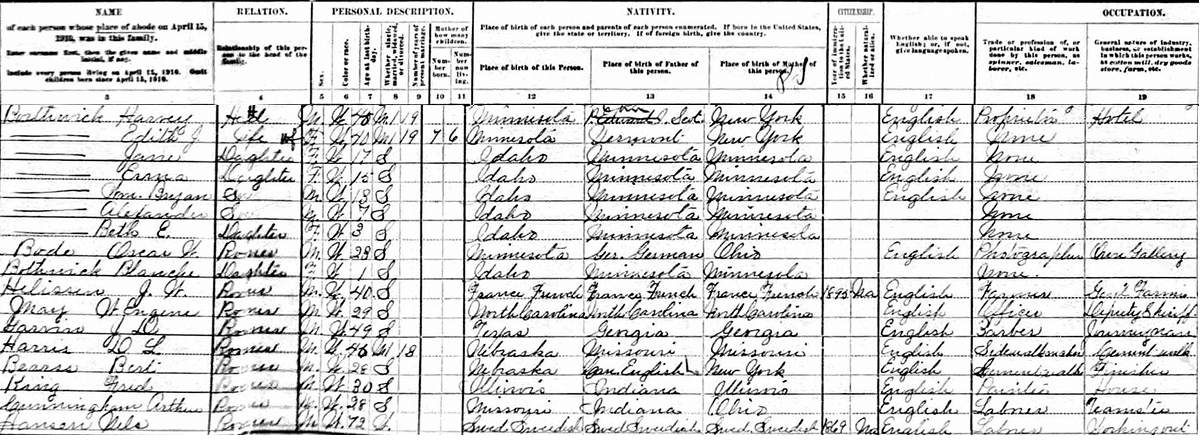 NAME RELATION. PERSONAL DESCRIPTION. NATIVITY. CITIZENSHIP. OCCUPATION.
of each person whose place of abode on April 15, 1910, was in this family.
Enter surname first, then the given name and middle initial, if any.
Include every person living on April 15, 1910. Omit children born since April 15, 1910.
Relationship of this person to the head of the family.
Sex.
Color or race.
Age at last birthday.
Whether single, married, widowed, or divorced.
Number of years of present marriage.
Mother of how many children.
Number born.
Number now living.
Place of birth of each person and parents of each person enumerated. If born in the United States, give the state or territory. If of foreign birth, give the country.
Place of birth of this Person.
Place of birth of Father of this person.
Place of birth of Mother of this person.
Year of immigration to the United States.
Whether naturalized or alien.
Whether able to speak English; or, if not, give language spoken.
Trade or profession of, or particular kind of work done by this person, as spinner, salesman, laborer, etc.
General nature of industry, business, or establishment in which this person works, as cotton mill, dry goods store, farm, etc.
3 4 5 6 7 8 9 10 11 12 13 14 15 16 17 18 19
Bothwick Harvey Head M W 48 M1 19 Minnesota New York English Proprietor Hotel
Edith J Wife F W 40 M1 19 7 6 Minnesota Vermont New York English None
Jane Daughter F W 17 S Idaho Minnesota Minnesota English None
Erma Daughter F W 15 S Idaho Minnesota Minnesota English None
Bryan Son M W 13 S Idaho Minnesota Minnesota English None
Alexander Son M W 7 S Idaho Minnesota Minnesota None
Beth E. Daughter F W 3 S Idaho Minnesota Minnesota None
Bode Oscar W. Roomer M W 28 S Minnesota Ger. German Ohio English Photographer Own Gallery
Bothwick Blanche Daughter F W 1 S Idaho Minnesota Minnesota None
J. W. Roomer M W 40 S France French France French France French 1893 Na English Farmer Gen'l Farm
May W Eugene Roomer M W 29 S North Carolina North Carolina North Carolina English Officer Deputy Sheriff
J. D. Roomer M W 49 S Texas Georgia Georgia English Barber Journeyman
Harris D L Roomer M W 46 M 18 Nebraska Missouri Missouri English Cement walk
Bearse Bert Roomer M W 28 S Nebraska Can English New York English Cement walk Finisher
King Fred Roomer M W 30 S Illinois Indiana Illinois English Painter House
Cunningham Arthur Roomer M W 28 S Missouri Indiana Ohio English Laborer Teamster
Hansen Nels Roomer M W 72 Swed Swedish Swed Swedish Swed Swedish 1869 Na English Laborer Working out